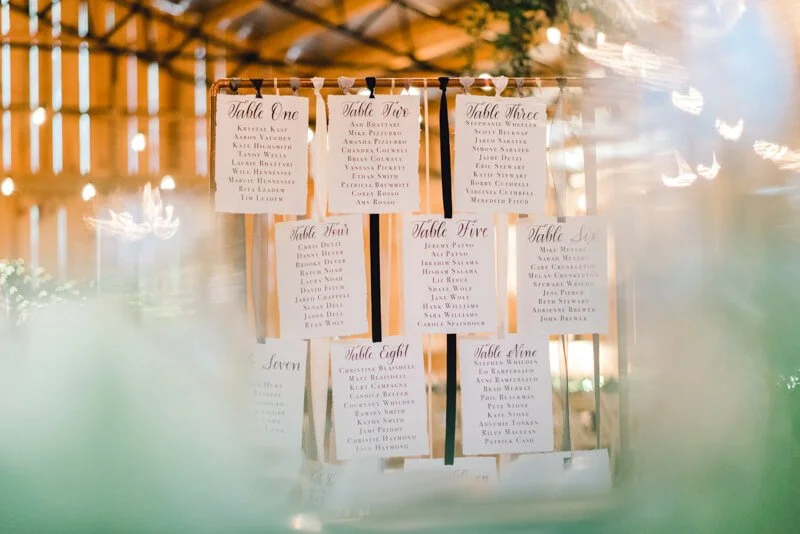 Table One
Krystal Kast
Aaron Vaughen
Kate Highsmith
Tandy Wells
Laure Bhattari
Will Hennessee
Margie Hennessee
Rita Leadem
Tim Leadem
Table Two
Ash Bhattari
Mike Pizzurro
Amanda Pizzurro
Chandra Colwell
Brian Colwell
Vanessa Pickett
Ethan Smith
Patricia Brummitt
Corey Rosso
Amy Rosso
Table Three
Stephanie Wheeler
Scott Belknap
Jared Sabater
Simone Sabater
Jaime Detzi
Eric Stewart
Katie Stewart
Bobby Cuthrell
Virginia Cuthrell
Meredith Fitch
Table Four
Chris Detzi
Danny Dever
Brooke Dever
Batch Noah
Laura Noah
David Fitch
Jared Chappell
Susan Dell
Jason Dell
Ryan Wolf
Table Five
Jeremy Patno
Ali Patno
Ibrahim Salama
Hisham Salama
Liz Reece
Shate Wolf
Jane Wolf
Hank Williams
Sara Williams
Carole Spainhour
Table Six
Mike Meyers
Sarah Meyers
Cary Crunkleton
Megan Crunkleton
Stewart Wright
Jess Pierce
Beth Stewart
Adrienne Brewer
John Brewer
Seven
Table Eight
Christine Blaisdell
Matt Blaisdell
Kurt Campagna
Candice Belter
Courtney Whilden
Ramsey Smith
Kathy Smith
Jami
Christie Haymond
Todd Haymond
Table Nine
Stephen Whilden
Ed Rampersaud
Ayni Rampersaud
Brad Murray
Phil Blackman
Pete Stone
Kaye Stone
Annemie Tonken
Riley Maclean
Patrick Cash